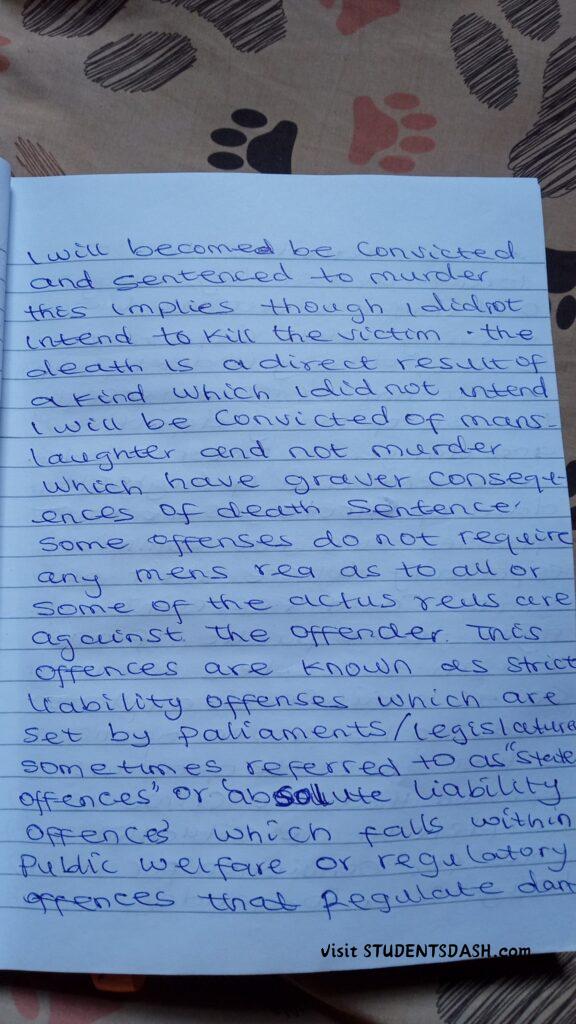 I will becomed be convicted
and sentenced to murder
this implies though I did not
intend to kill the victim. the
death is a direct result of
a kind which I did not intend
I will be convicted of mans-
laughter and not murder
which have graver consequ-
ences of death sentence.
Some offenses do not require
any mens rea as to all or
some of the actus reus are
against the offender. This
offences are known as strict
liability offenses which are
set by paliaments/legislature
sometimes referred to as "state
offences" or 'absolute liability
offences' which falls within
Public welfare or regulatory
offences that Regulate dan
Visit STUDENTSDASH.com